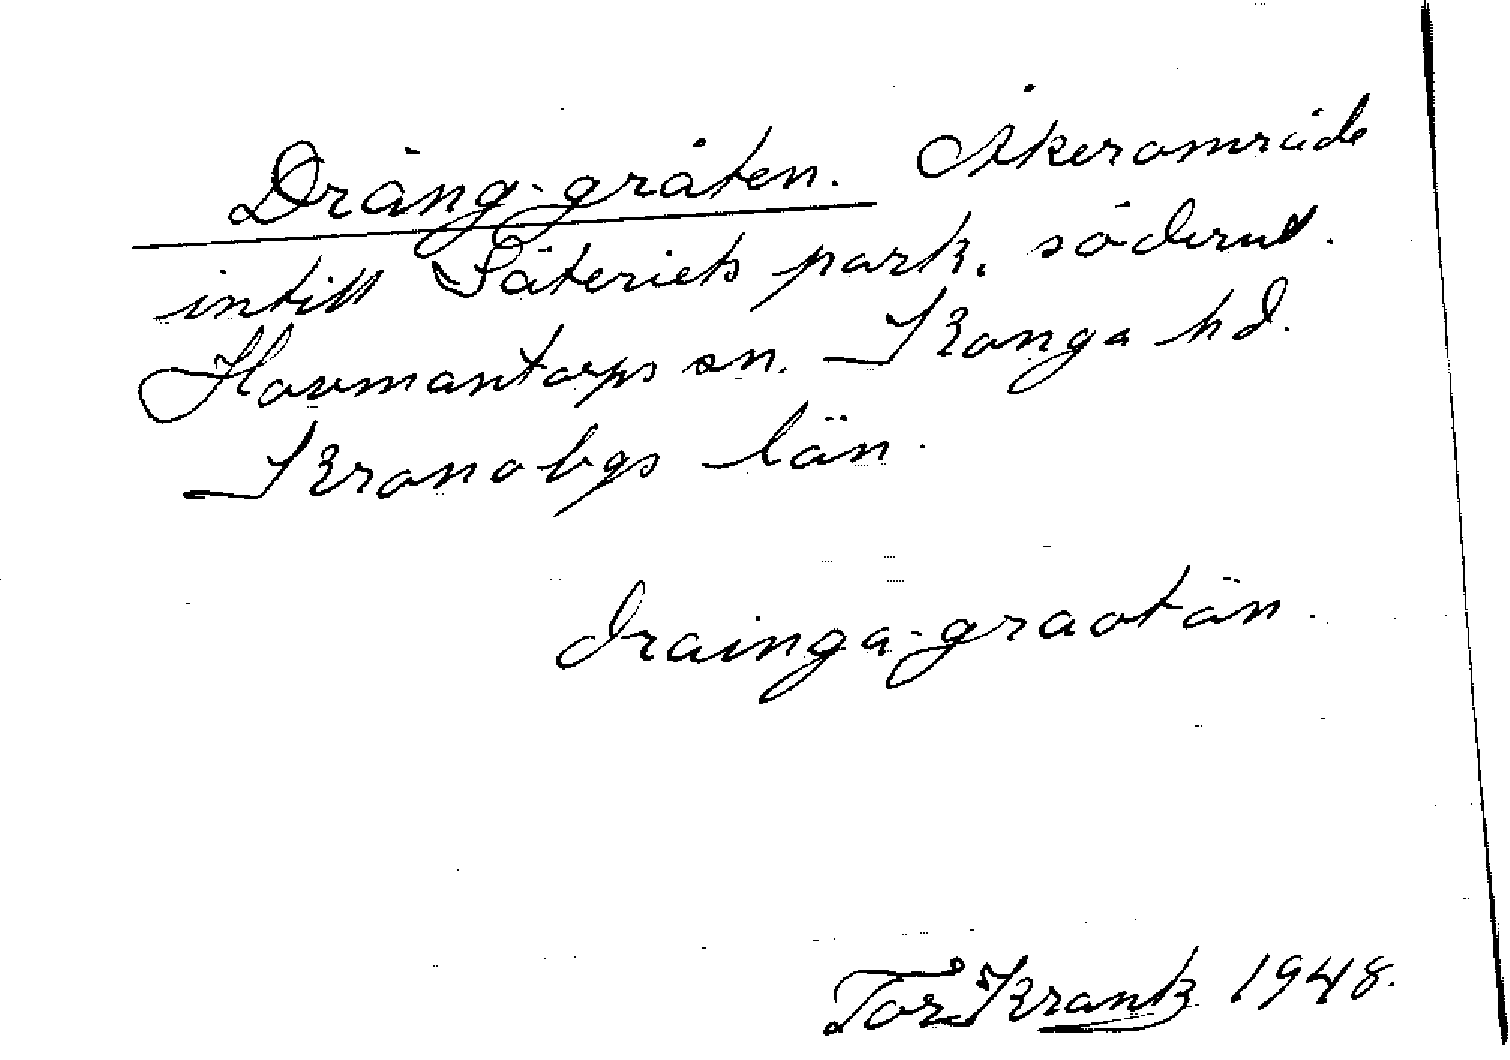 Dräng-gråten. Åkerområde
intill Säteriets park, söderut.
Hovmantorps sn. Konga hd.
Kronobgs län.
drainga-graotän.
Tor Krank 1948.